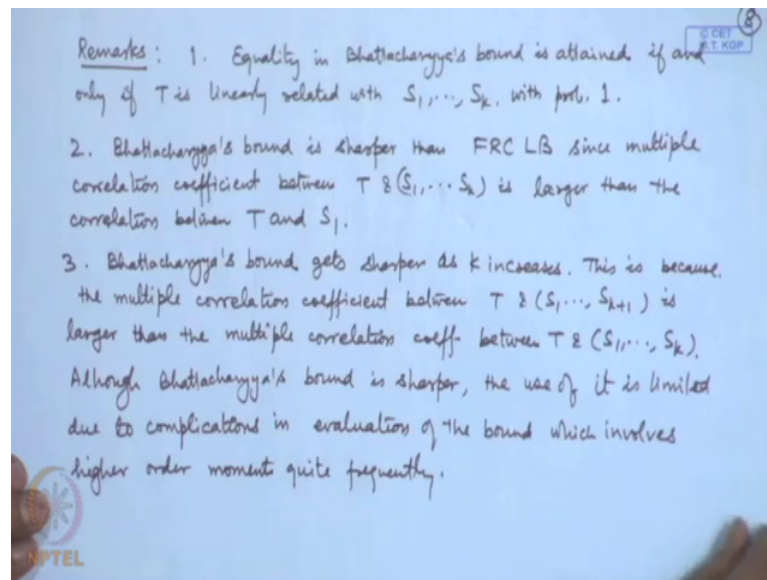 8
© CET
I.I.T. KGP
Remarks : 1. Equality in Bhattacharyya's bound is attained if and
only if T is linearly related with S1, ..., Sk. with prob. 1.
2. Bhattacharyya's bound is sharper than FRC LB since multiple
correlation coefficient between T & (S1, ... Sk) is larger than the
correlation between T and S1.
3. Bhattacharyya's bound gets sharper as k increases. This is because
the multiple correlation coefficient between T & (S1, ..., Sk+1) is
larger than the multiple correlation coeff. between T & (S1, ..., Sk).
Although Bhattacharyya's bound is sharper, the use of it is limited
due to complications in evaluation of the bound which involves
higher order moments quite frequently.
NPTEL